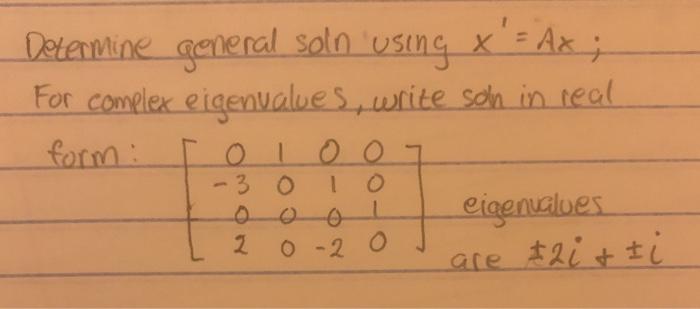 Determine general soln using x' = Ax ;
For complex eigenvalues, write soln in real
form:
0 1 0 0
-3 0 1 0
0 0 0 1 eigenvalues
2 0 -2 0 are ±2i + ±i